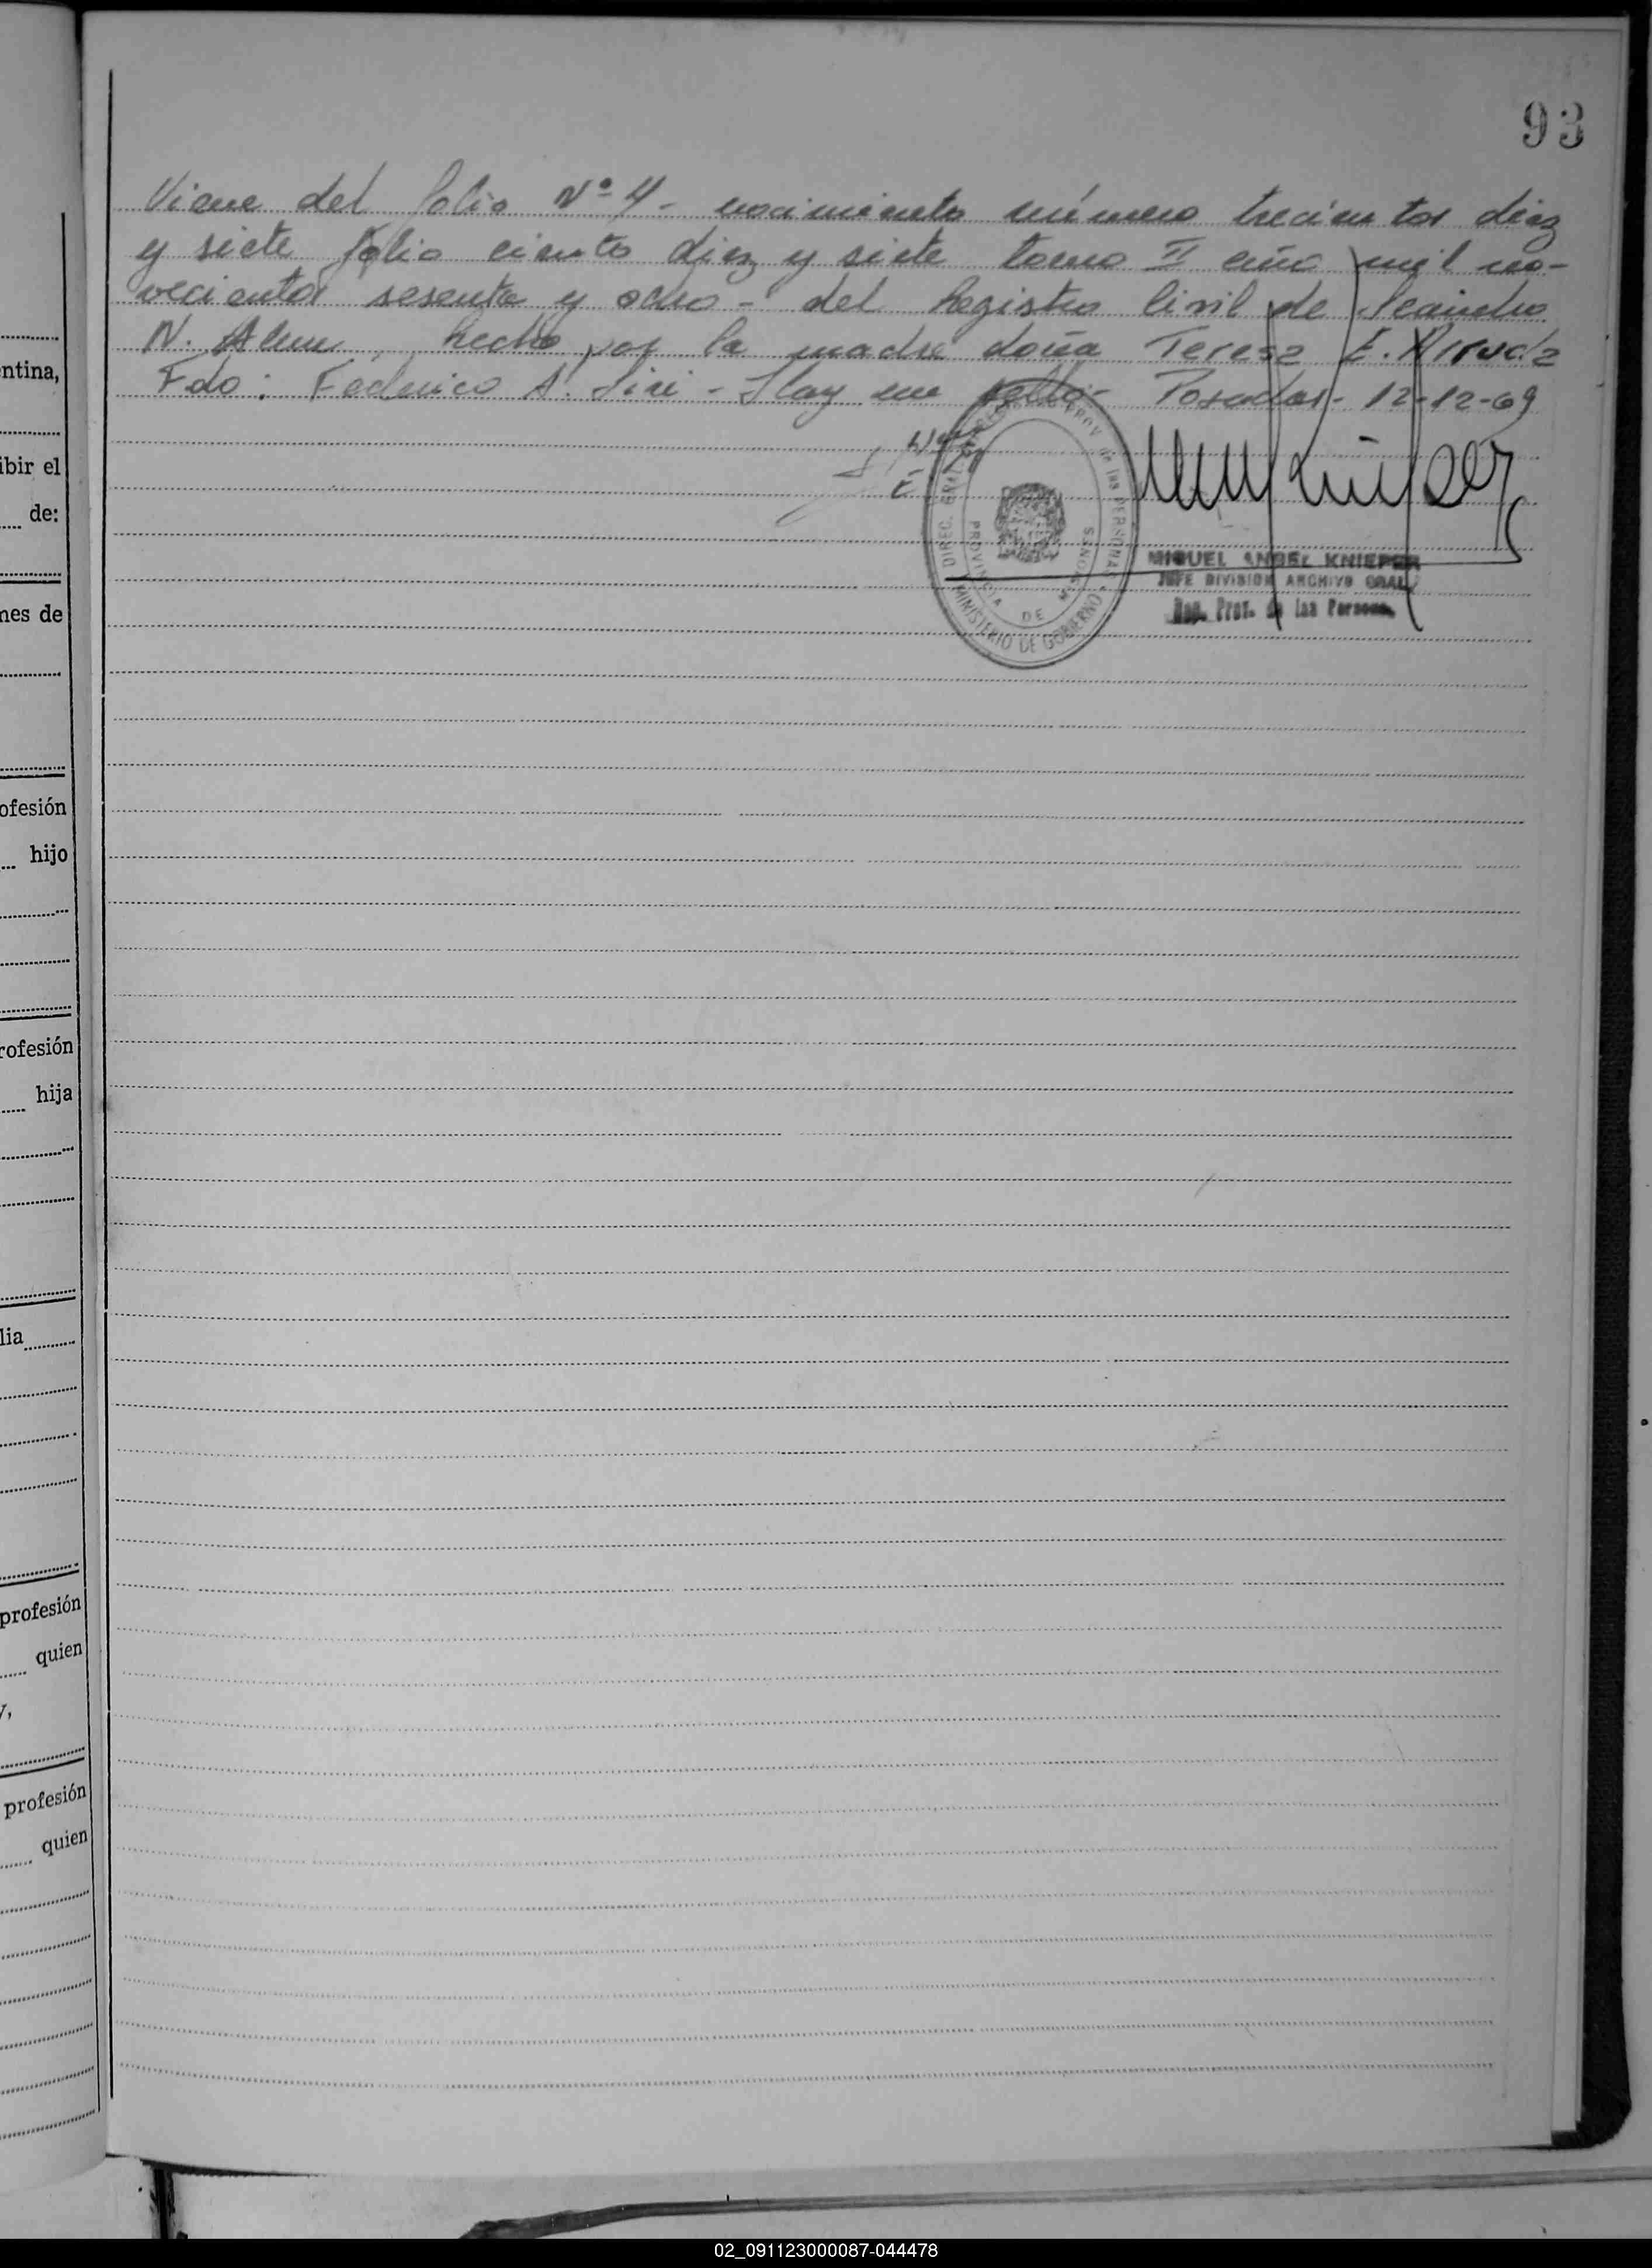 93
Viene del folio Nº 4 - nacimiento número trecientos diez
y siete folio ciento diez y siete tomo II año mil no-
vecientos sesenta y ocho - del Registro Civil de Leandro
N. Alem, hecho por la madre doña Teresa E.
Fdo: Federico A. Siri - Hay un sello - Posadas - 12-12-69
DIREC. GRAL. PROV. de las PERSONAS
PROVINCIA DE MISIONES
MINISTERIO DE GOBIERNO
MIGUEL ANGEL KNIEPER
JEFE DIVISION ARCHIVO GRAL.
Reg. Prov. de las Personas
ntina,
ibir el
de:
nes de
ofesión
hijo
rofesión
hija
lia
profesión
quien
y,
profesión
quien
02_091123000087-044478